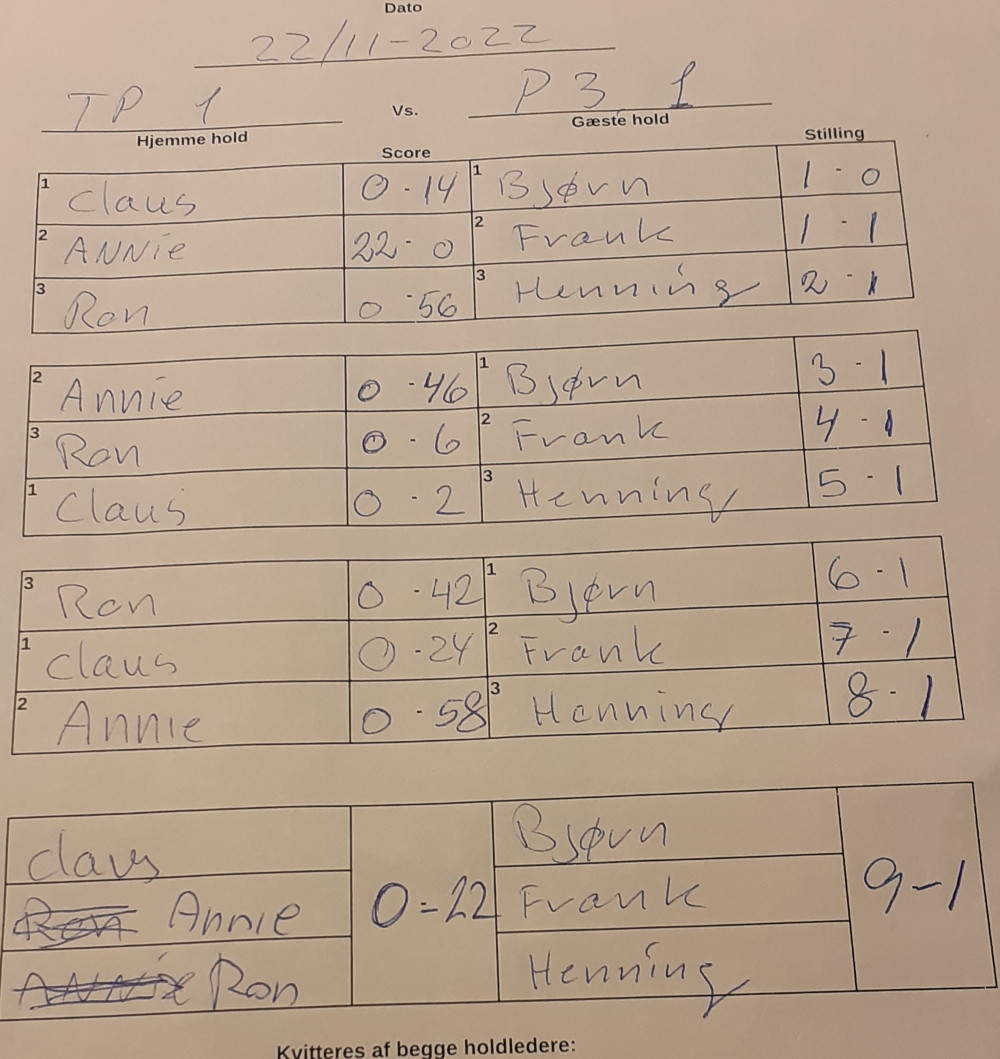 Dato
22/11-2022
TP 1 Vs. P3 1
Hjemme hold Gæste hold
Score Stilling
1 Claus 0-14 1 Bjørn 1-0
2 ANNie 22-0 2 Frank 1-1
3 Ron 0-56 3 Henning 2-1
2 Annie 0-46 1 Bjørn 3-1
3 Ron 0-6 2 Frank 4-1
1 Claus 0-2 3 Henning 5-1
3 Ron 0-42 1 Bjørn 6-1
1 Claus 0-24 2 Frank 7-1
2 Annie 0-58 3 Henning 8-1
Claus Bjørn
Ron Annie 0-22 Frank 9-1
ANNie Ron Henning
Kvitteres af begge holdledere: